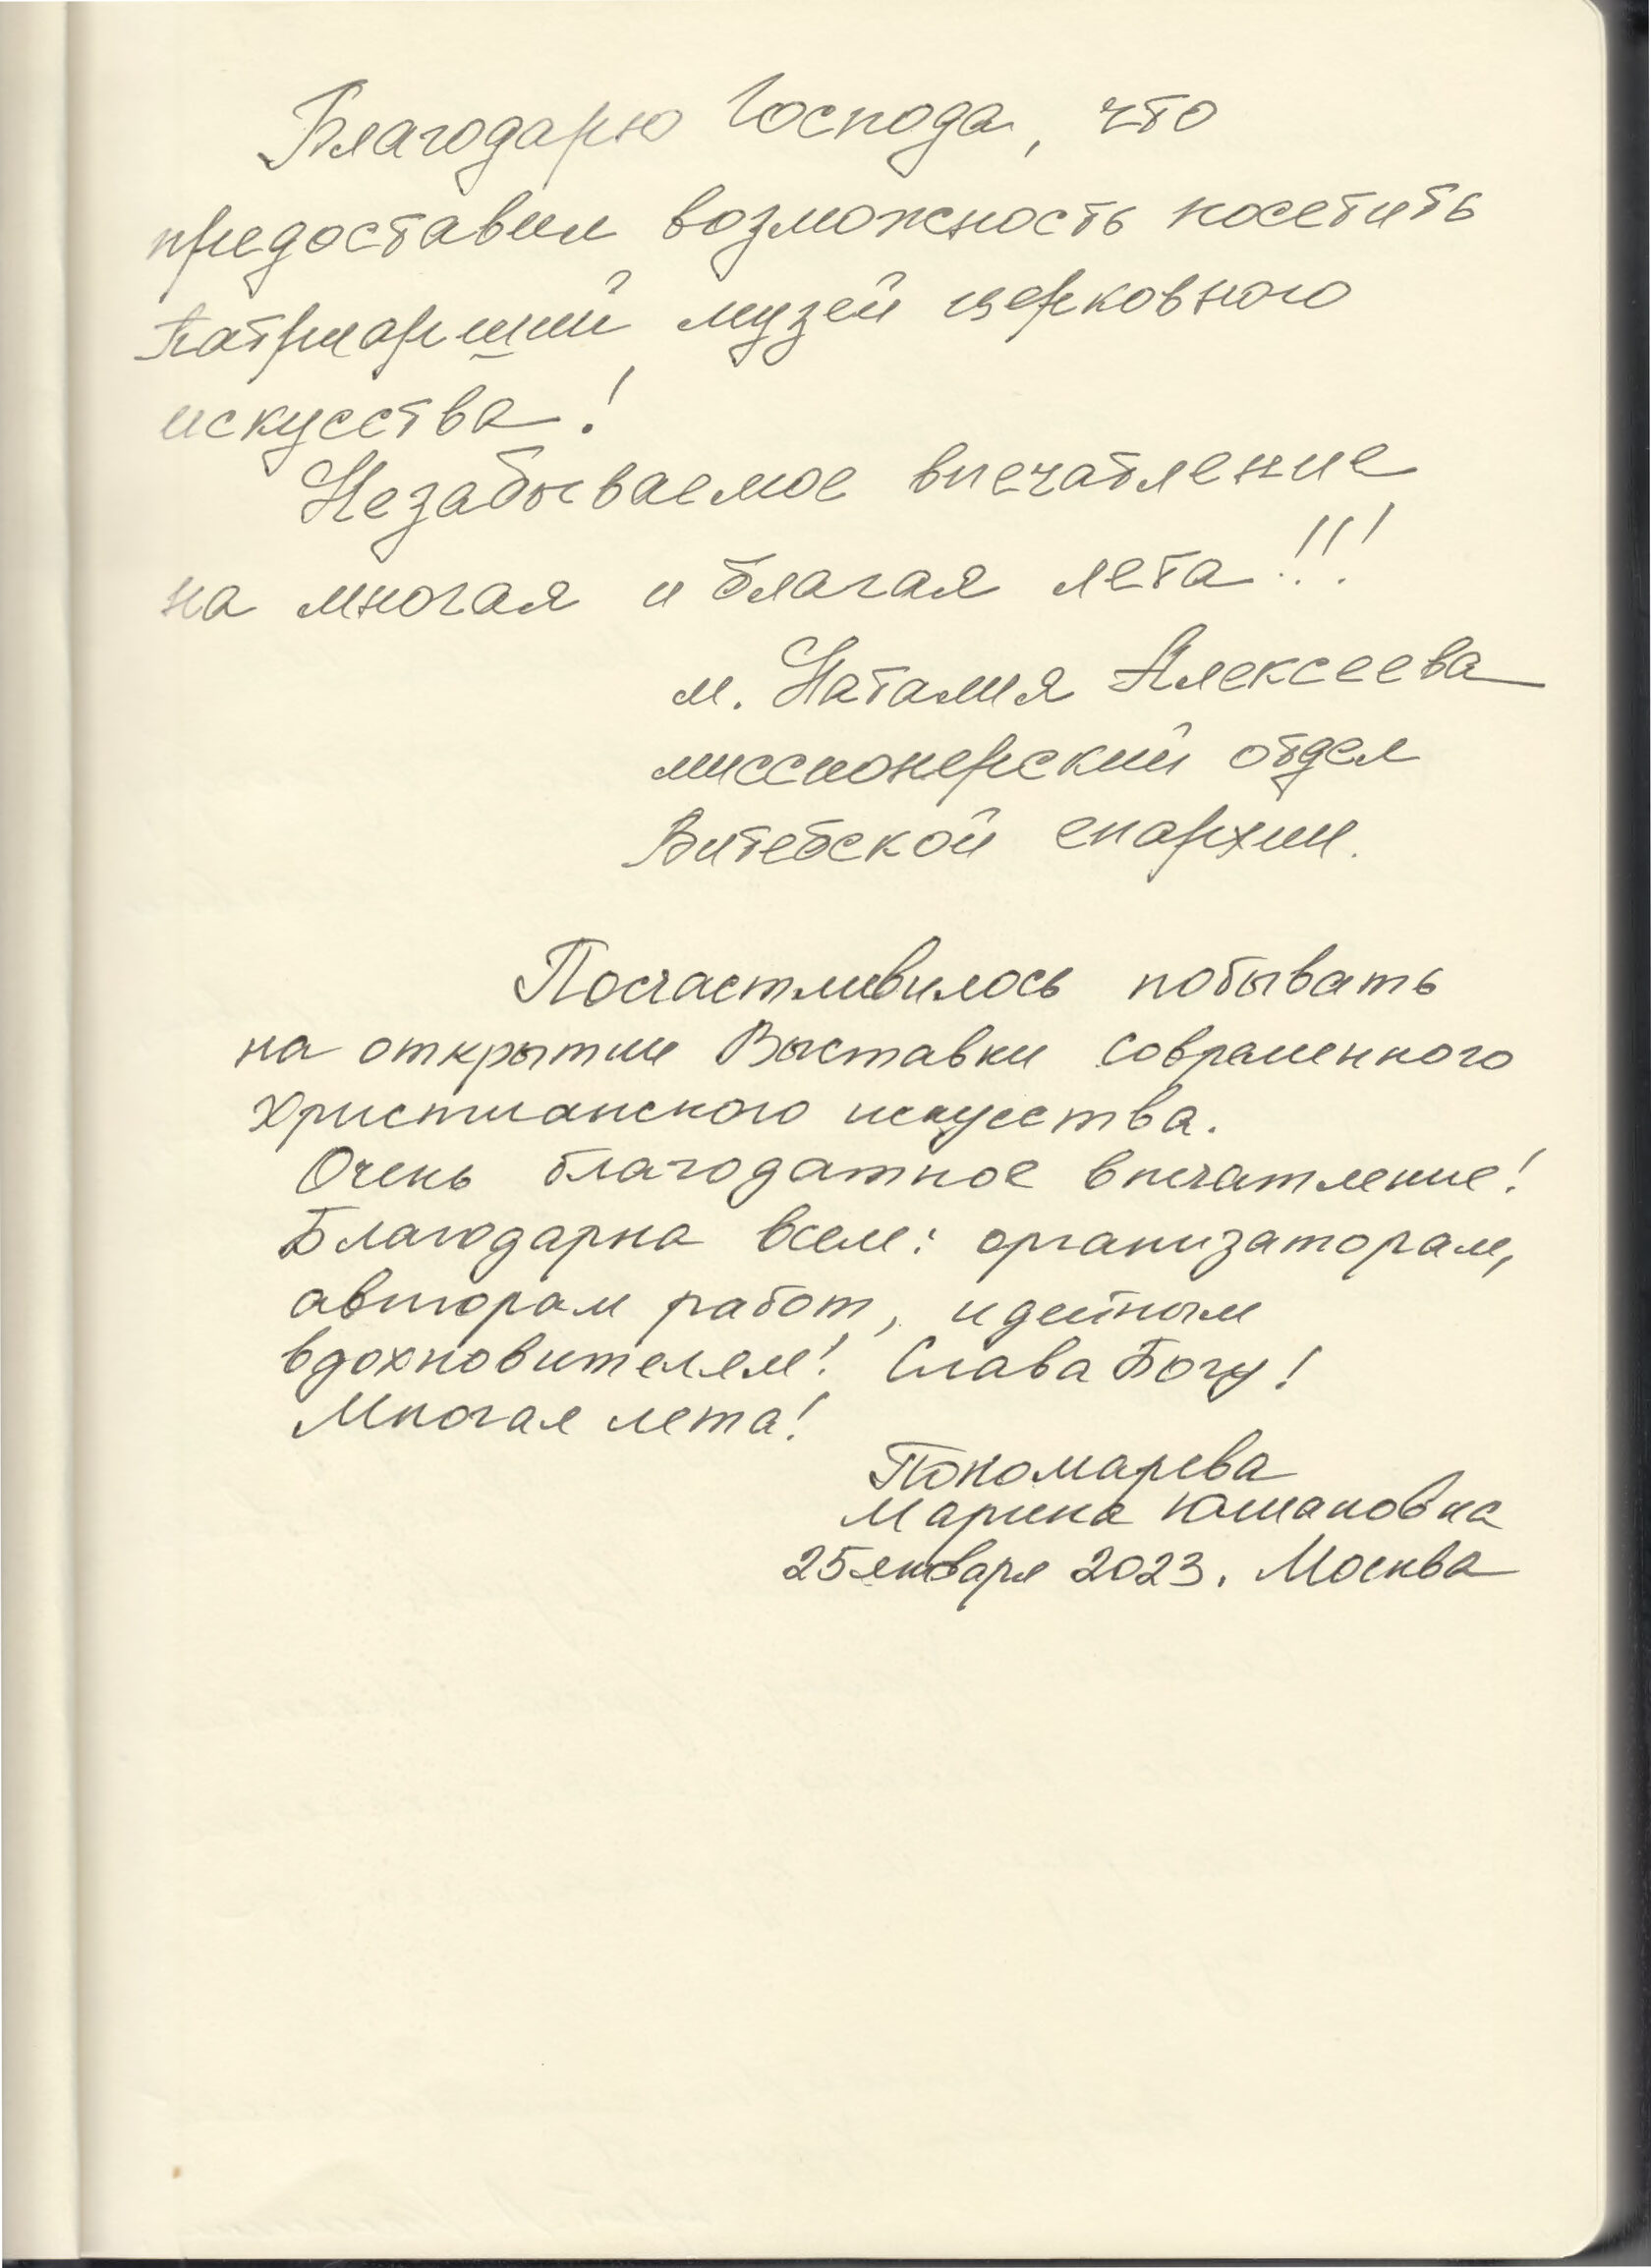 Благодарю Господа, что
предоставил возможность посетить
Патриарший музей церковного
искусства!
Незабываемое впечатление
на многая и благая лета!!!
м. Наталия Алексеева
миссионерский отдел
Витебской епархии.
Посчастливилось побывать
на открытии Выставки современного
христианского искусства.
Очень благодатное впечатление!
Благодарна всем: организаторам,
авторам работ, идейным
вдохновителям! Слава Богу!
Многая лета!
Пономарева
Марина
25 января 2023. Москва